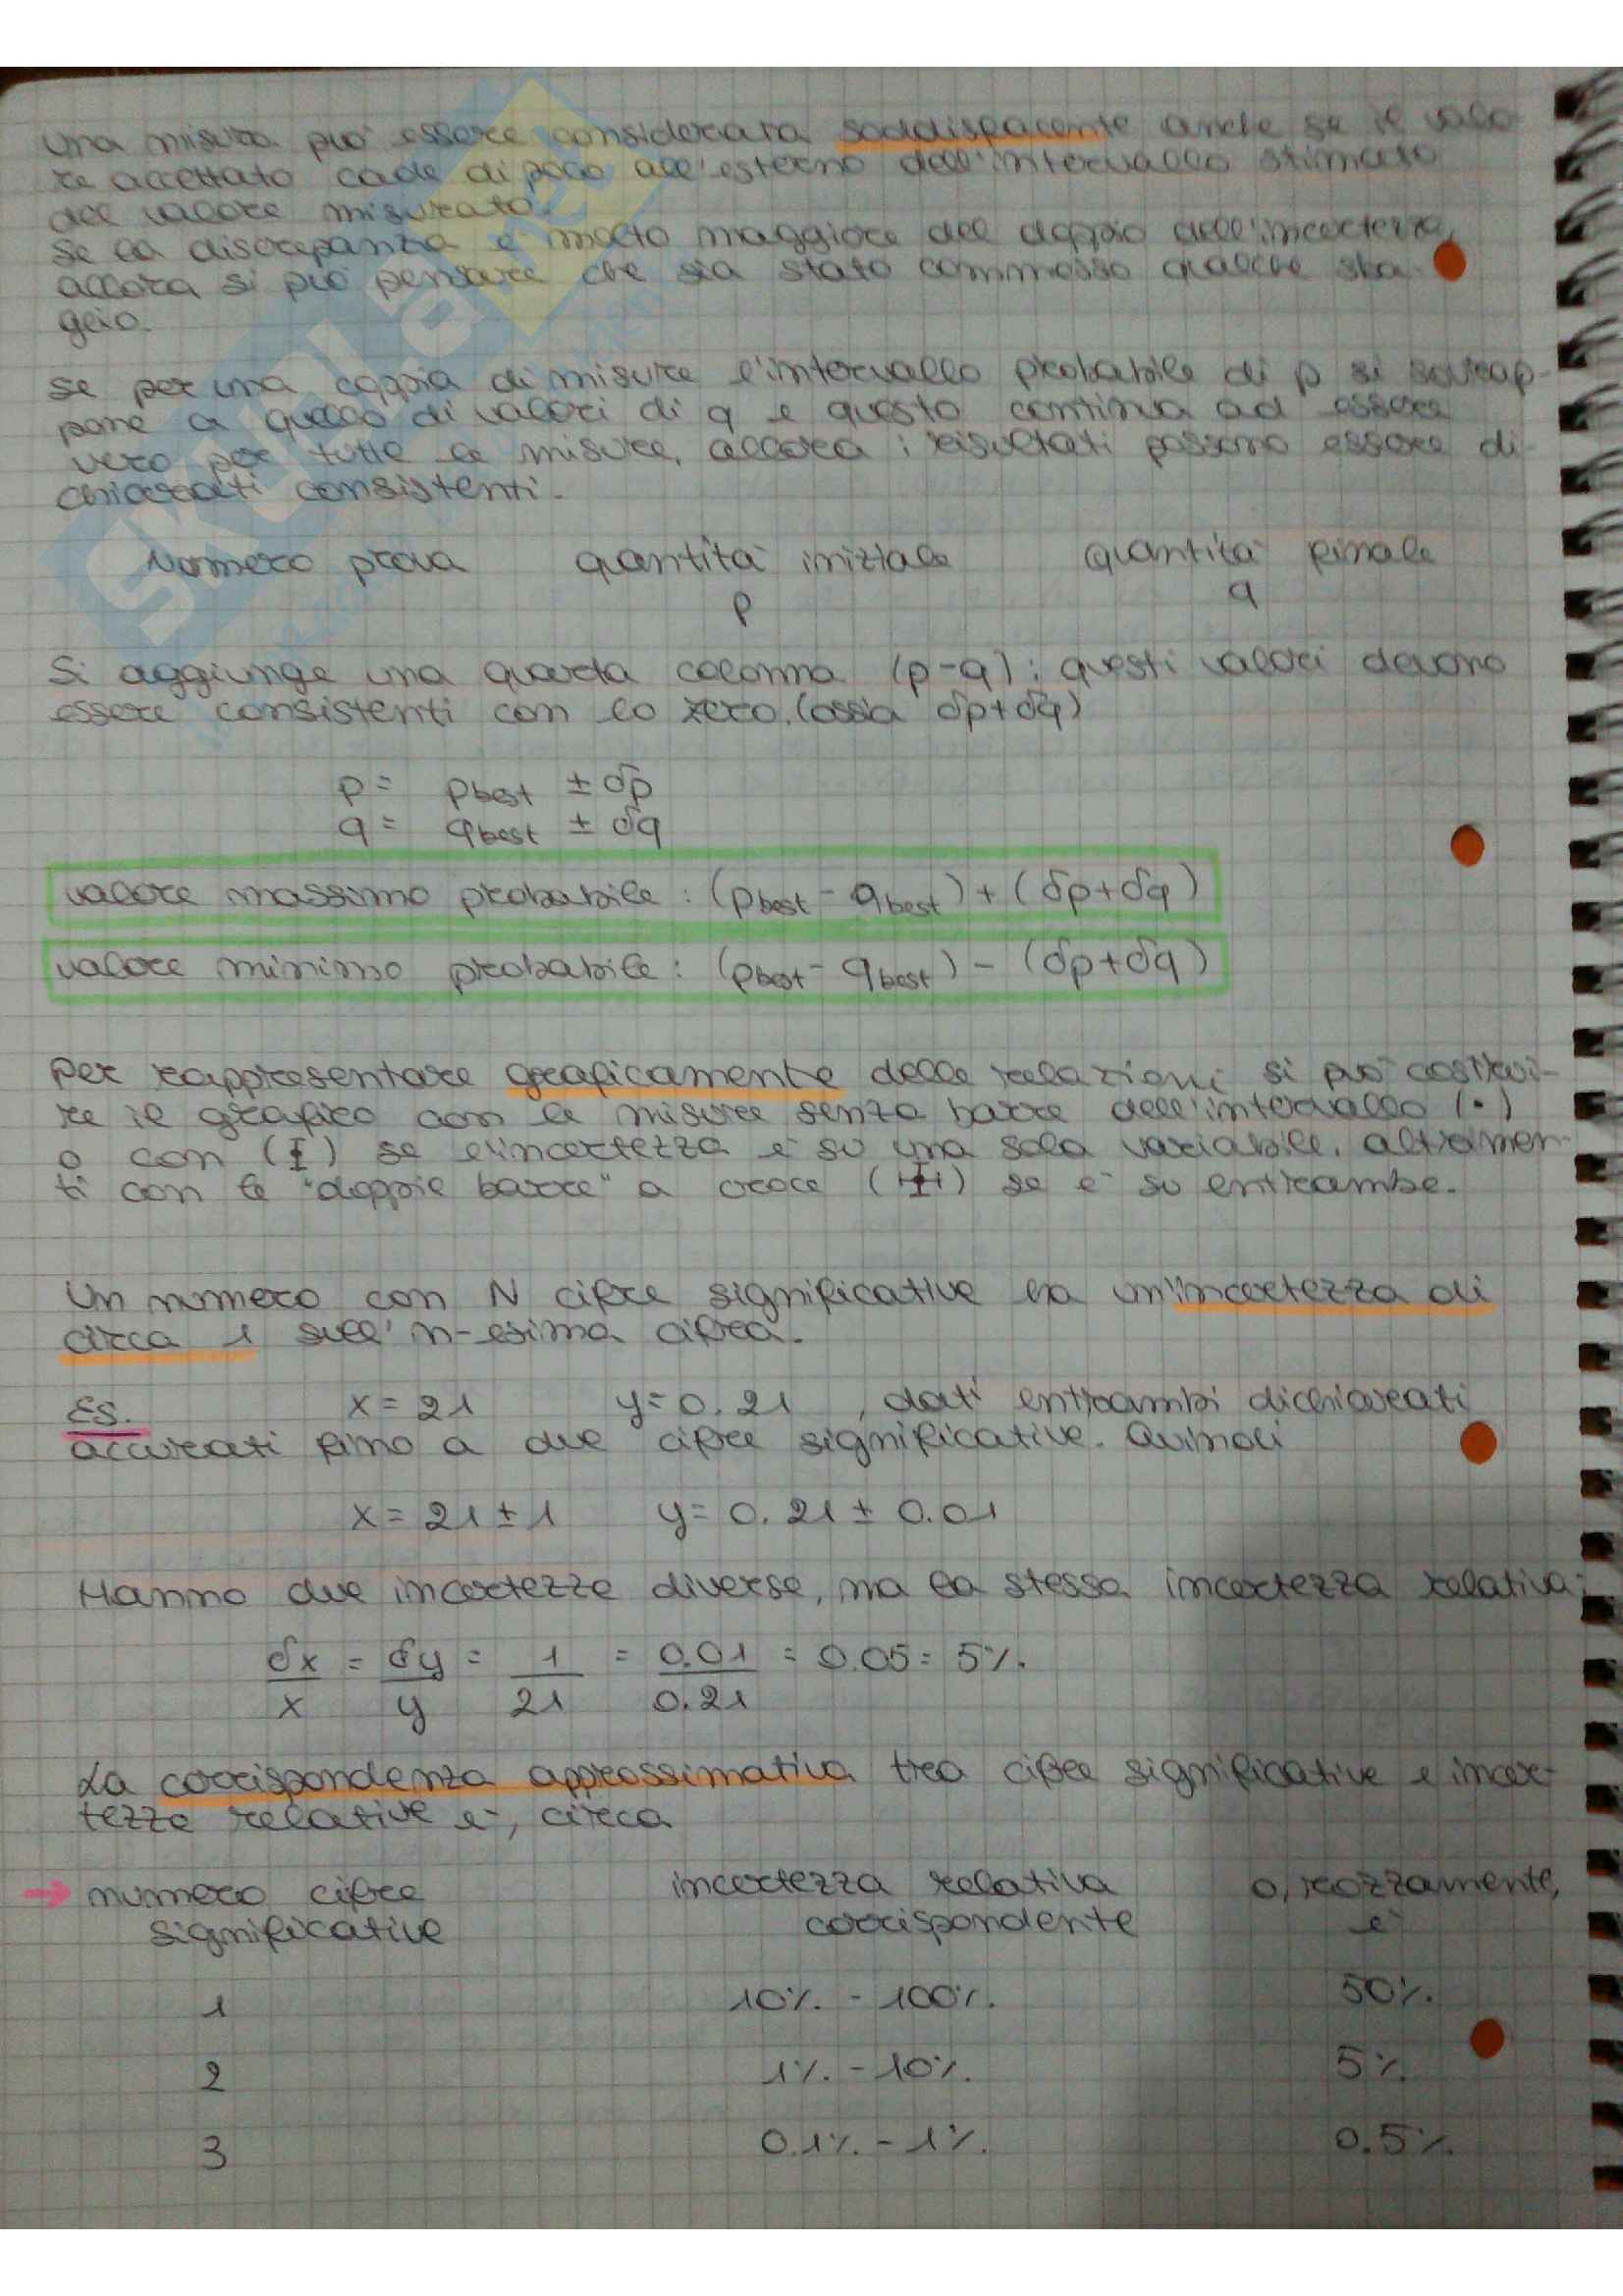 una misura può essere considerata soddisfacente anche se il valo
re accettato cade di poco all'esterno dell'intervallo stimato
del valore misurato.
Se la discrepanza è molto maggiore del doppio dell'incertezza,
allora si può pensare che sia stato commesso qualche sba
glio.
se per una coppia di misure l'intervallo probabile di p si sovrap-
pone a quello di valori di q e questo continua ad essere
vero per tutte le misure, allora i risultati possono essere di-
chiarati consistenti.
Numero prova quantità iniziale quantità finale
p q
Si aggiunge una quarta colonna (p-q): questi valori devono
essere consistenti con lo zero. (ossia δp+δq)
p= pbest ± δp
q= qbest ± δq
valore massimo probabile: (pbest - qbest) + (δp+δq)
valore minimo probabile: (pbest - qbest) - (δp+δq)
Per rappresentare graficamente delle relazioni si può costrui-
re il grafico con le misure senza barre dell'intervallo (•)
o con (I) se l'incertezza è su una sola variabile, altrimen-
ti con le "doppie barre" a croce ( ) se è su entrambe.
Un numero con N cifre significative ha un'incertezza di
circa 1 sull'n-esima cifra.
Es. x=21 y=0.21 , dati entrambi dichiarati
accurati fino a due cifre significative. Quindi
x=21±1 y=0.21±0.01
Hanno due incertezze diverse, ma la stessa incertezza relativa:
δx/x = δy/y = 1/21 = 0.01/0.21 = 0.05 = 5%.
La corrispondenza approssimativa tra cifre significative e incer-
tezze relative è, circa
→ numero cifre incertezza relativa o, rozzamente,
significative corrispondente è
1 10% - 100% 50%
2 1% - 10% 5%
3 0.1% - 1% 0.5%